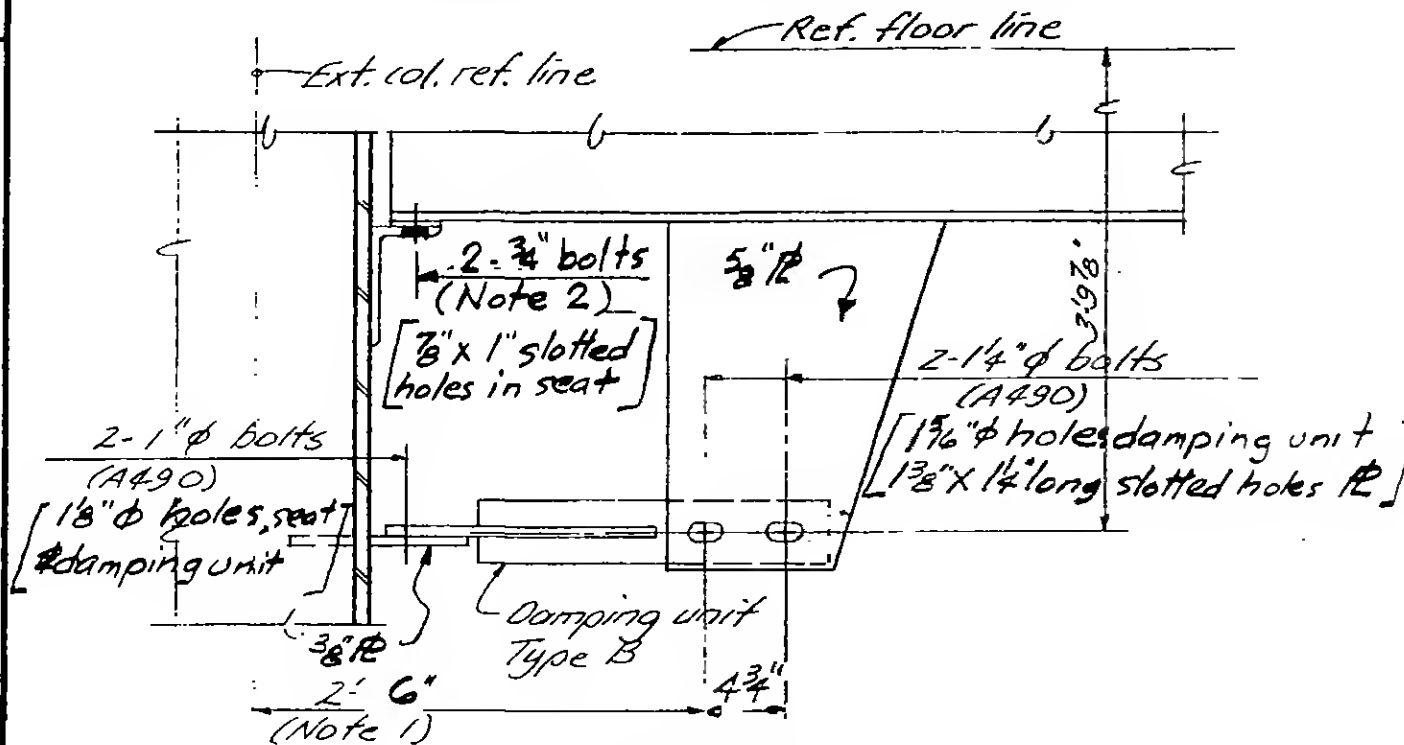 Ref. floor line
Ext. col. ref. line
2-¾" bolts
(Note 2)
[⅞" x 1" slotted
holes in seat]
⅝" ℄
3'-9⅞"
2-1¼" ø bolts
(A490)
[1 5/16" ø holes, damping unit
1⅜" X 1¼" long slotted holes ℄]
2-1" ø bolts
(A490)
[1⅛" ø holes, seat
& damping unit]
Damping unit
Type B
⅜" ℄
2'- 6"
(Note 1)
4¾"